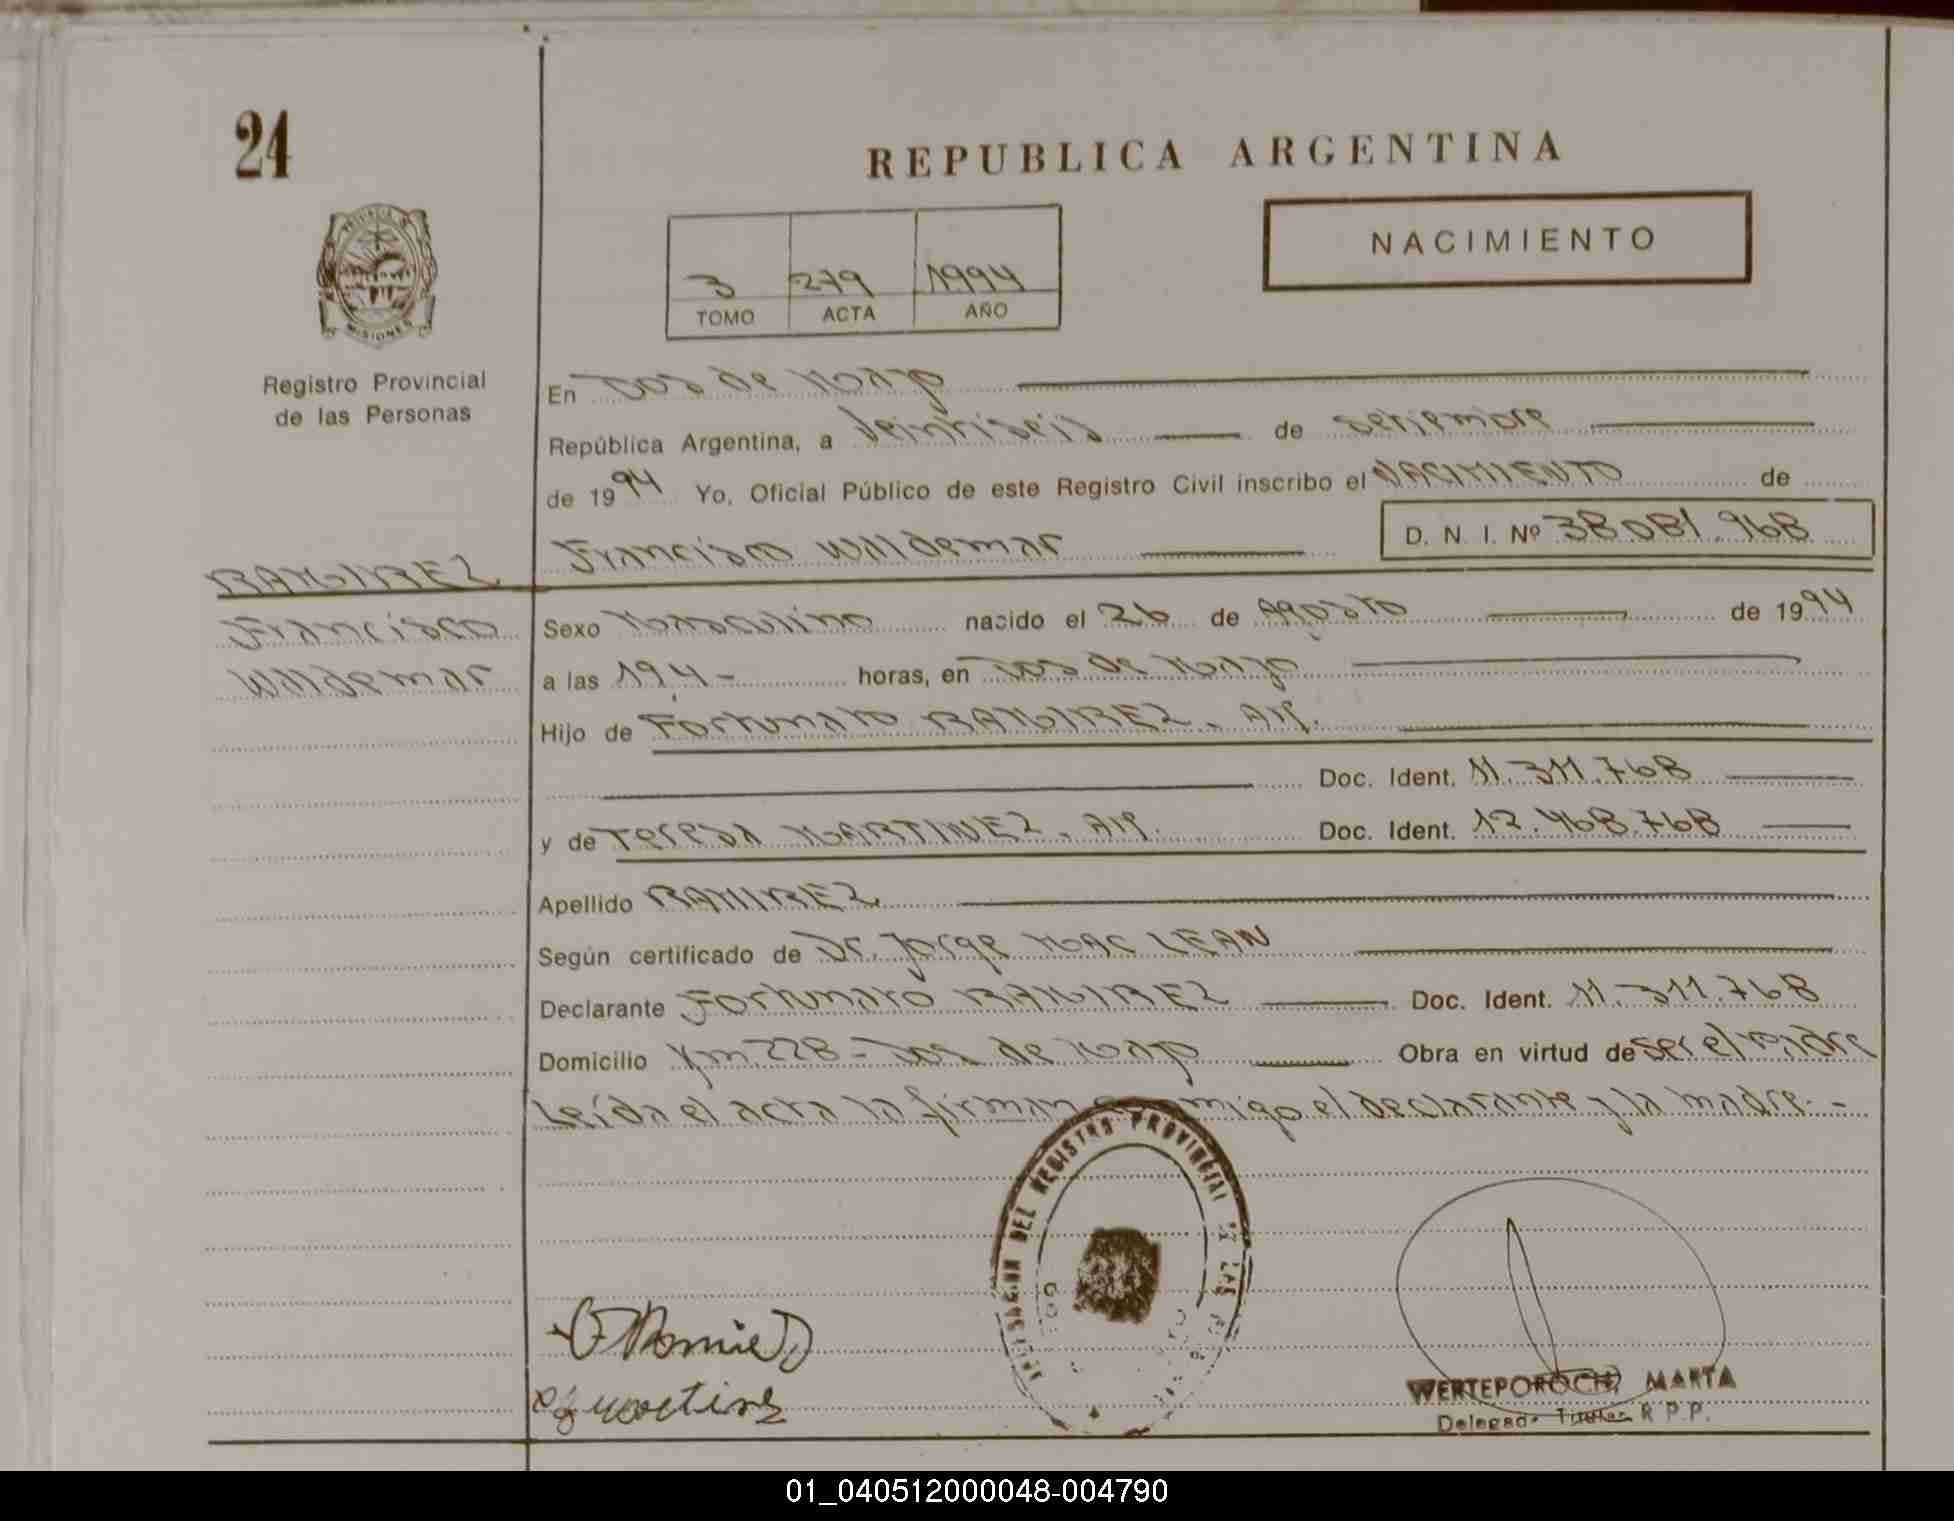 24
REPUBLICA ARGENTINA
NACIMIENTO
3 279 1994
TOMO ACTA AÑO
PROVINCIA DE MISIONES
Registro Provincial
de las Personas
En Dos de Mayo
República Argentina, a Veintiseis de setiembre
de 1994 Yo, Oficial Público de este Registro Civil inscribo el NACIMIENTO de
Francisco Waldemar D. N. I. Nº 38.081.968
RAMIREZ
Francisco
Waldemar
Sexo Masculino nacido el 26 de Agosto de 1994
a las 19,4- horas, en Dos de Mayo
Hijo de Fortunato RAMIREZ. AM.
Doc. Ident. 11.311.768
y de Teresa MARTINEZ. AM. Doc. Ident. 12.468.768
Apellido RAMIREZ
Según certificado de Dr. Jorge MAC LEAN
Declarante Fortunato RAMIREZ Doc. Ident. 11.311.768
Domicilio Km 228 - Dos de Mayo Obra en virtud de ser el padre
Leída el acta la firman conmigo el declarante y la madre.-
DEL REGISTRO PROVINCIAL DE LAS
WERTEPOROCH, MARTA
Delegada Titular R.P.P.
01_040512000048-004790